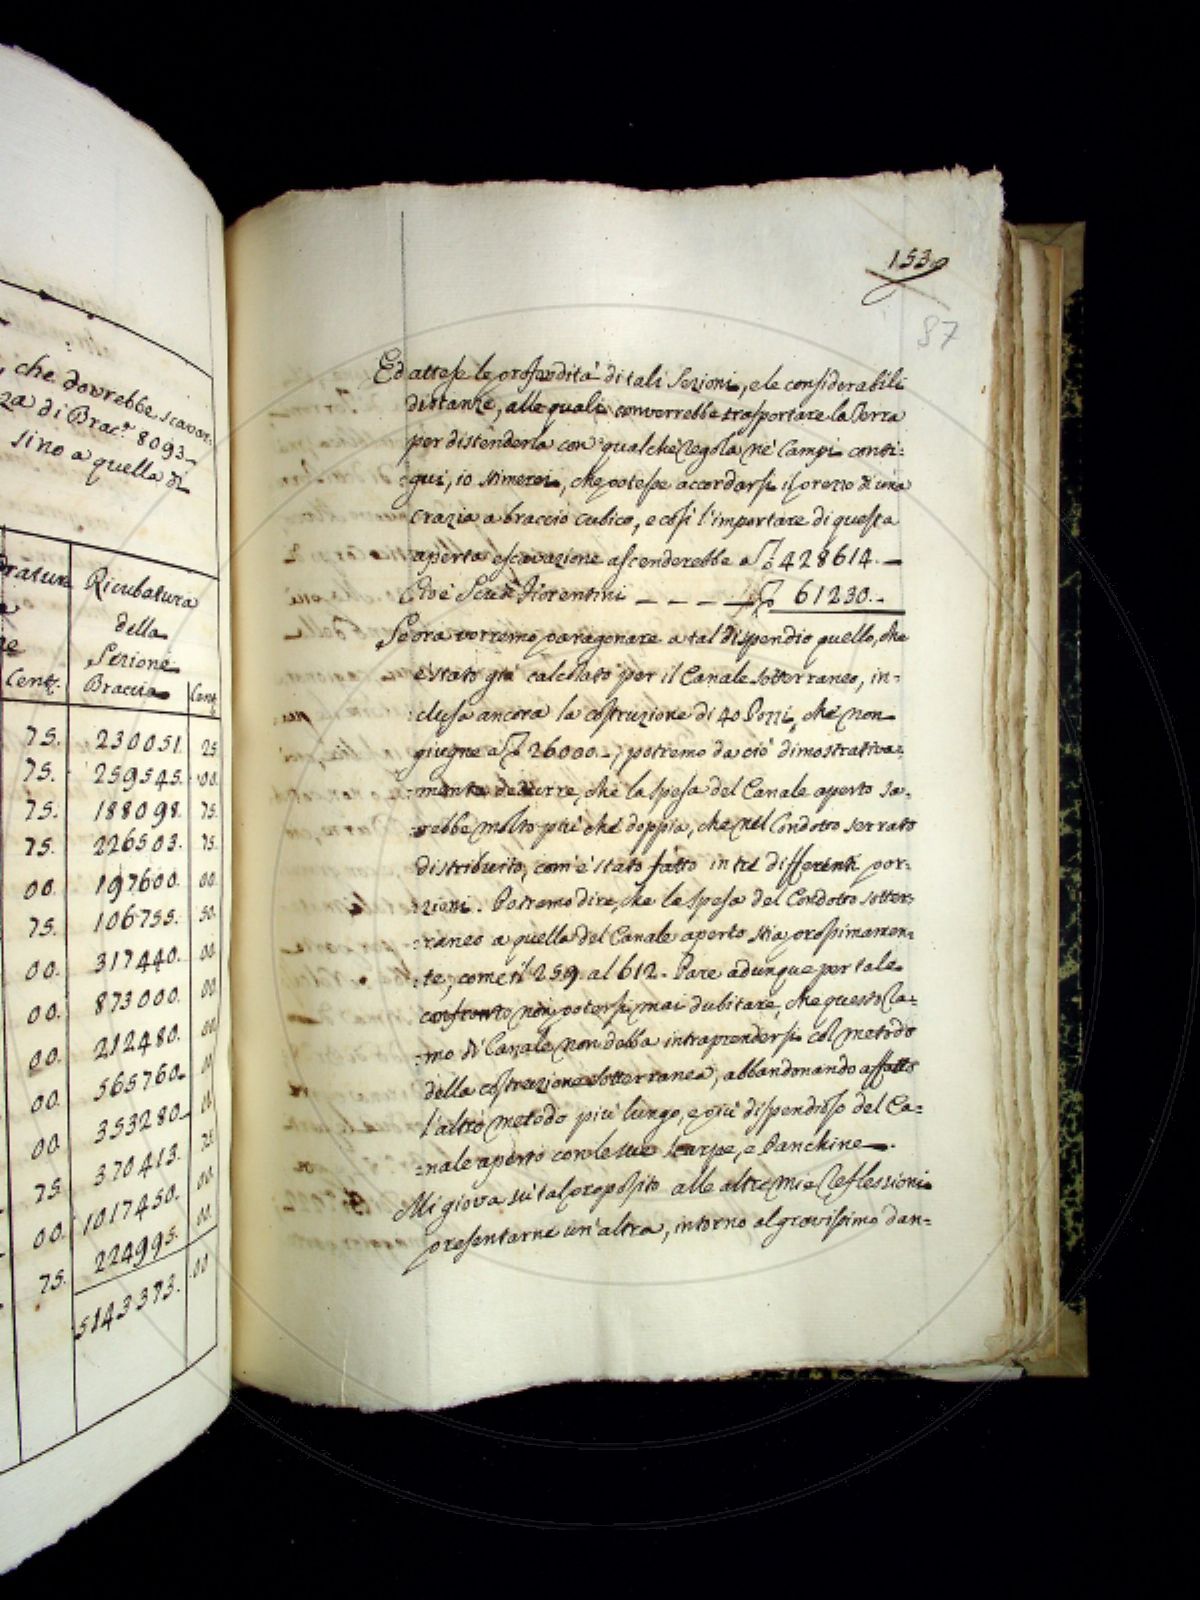 , che dovrebbe scavar-
za di Brac.ᵃ 8093-
sino a quella di
Ricubatura
della
Sezione
Cent. Braccia Cent.
75. 230051. 25
75. 259545. 00.
75. 188098. 75.
75. 226503. 75.
00. 197600. 00.
75. 106755. 50.
00. 317440. 00
00. 873000. 00.
00. 212480. 00
00. 565760.
00. 353280.
75. 370413. 75.
00. 1017450. 00.
75. 224995. 00.
5143373. 00
153.
87
Ed attese le profondità di tali Sezioni, e le considerabili
distanze, alle quali converrebbe trasportare la Terra
per distenderla con qualche regola ne' Campi conti=
=gui, io stimerei, che potesse accordarsi il prezzo di una
crazia a braccio cubico, e così l'importare di questa
aperta escavazione ascenderebbe a 428614.—
Cioè Scudi Fiorentini — — — — 61230.-
Se ora vorremo paragonare a tal dispendio quello, che
è stato già calcolato per il Canale sotterraneo, in=
=clusa ancora la costruzione di 40 Pozzi, che non
giugne a 26000.-; potremo da ciò dimostrativa=
=mente dedurre, che la spesa del Canale aperto sa=
=rebbe molto più che doppia, che nel Condotto serrato
distribuito, com'è stato fatto in tre differenti por=
=zioni. Potremo dire, che la spesa del Condotto sotter=
=raneo a quella del Canale aperto stia prossimamen=
=te, come il 259. al 612. Pare adunque per tale
confronto non potersi mai dubitare, che questo Ra=
=mo di Canale non debba intraprendersi col metodo
della costruzione sotterranea, abbandonando affatto
l'altro metodo più lungo, e più dispendioso del Ca=
=nale aperto con le sue scarpe, e Panchine.
Mi giova su tal proposito alle altre mie reflessioni
presentarne un'altra, intorno al gravissimo dan=